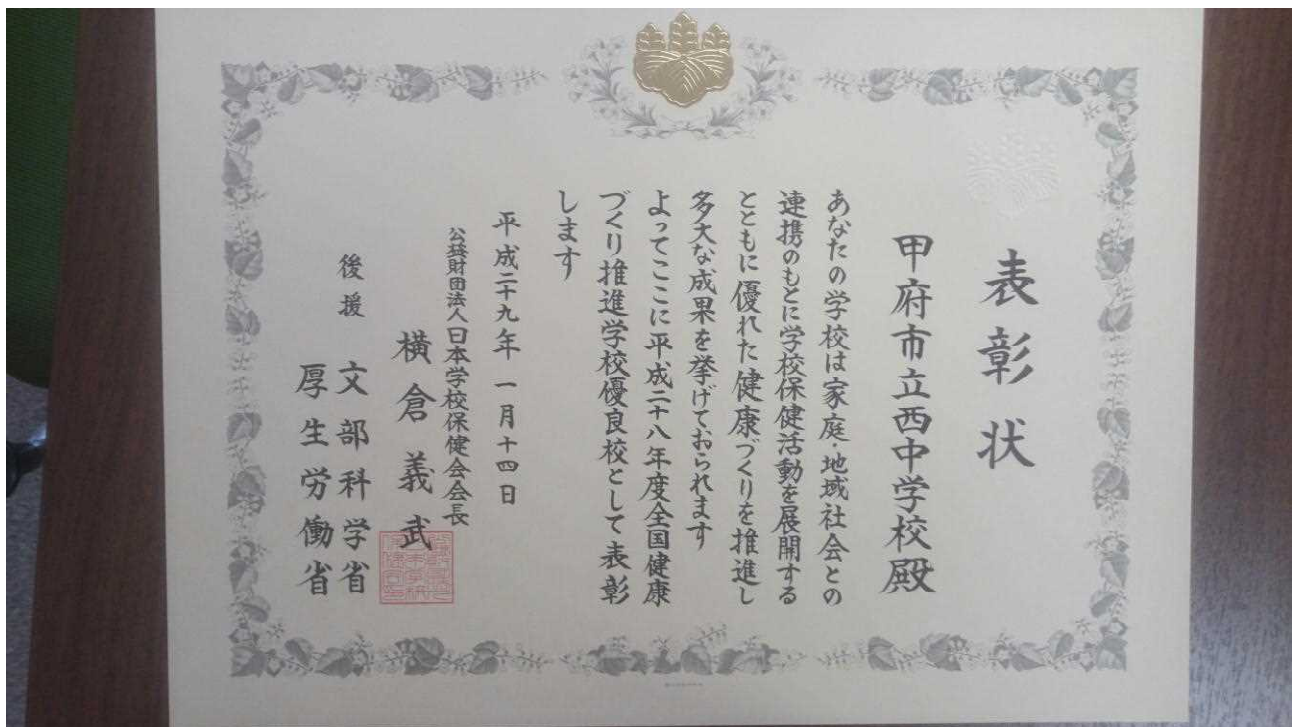 表彰状
甲府市立西中学校殿
あなたの学校は家庭・地域社会との
連携のもとに学校保健活動を展開する
とともに優れた健康づくりを推進し
多大な成果を挙げておられます
よってここに平成二十八年度全国健康
づくり推進学校優良校として表彰
します
平成二十九年一月十四日
公益財団法人日本学校保健会会長
横倉義武
後援 文部科学省
厚生労働省